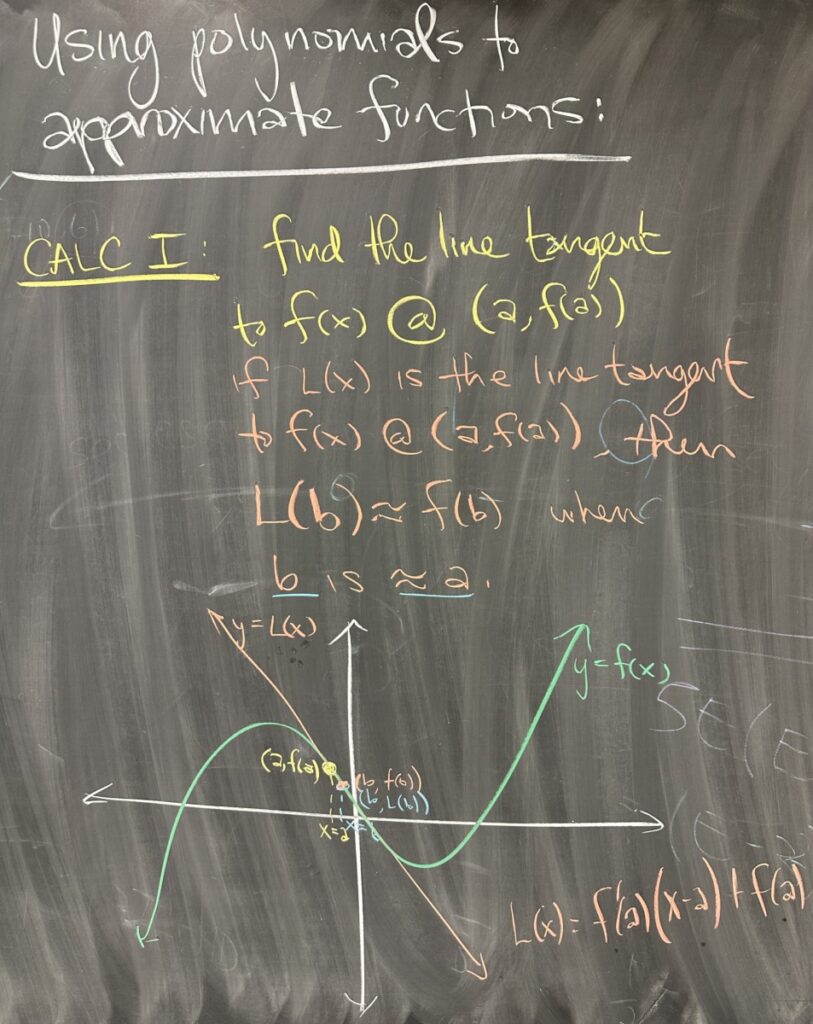 Using polynomials to
approximate functions:
CALC I: find the line tangent
to f(x) @ (a, f(a))
if L(x) is the line tangent
to f(x) @ (a, f(a)), then
L(b) ≈ f(b) when
b is ≈ a.
y = L(x)
y = f(x)
(a, f(a))
(b, f(b))
(b, L(b))
x=a
L(x) = f'(a)(x-a) + f(a)